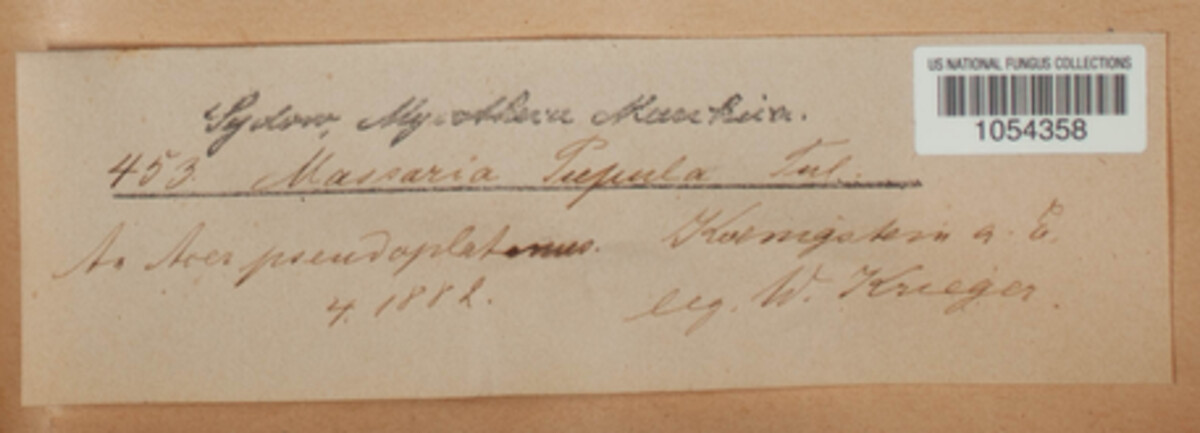 US NATIONAL FUNGUS COLLECTIONS
1054358
Sydow, Mycotheca Marchica.
453. Massaria Pupula Tul.
An Acer pseudoplatanus. Koenigstein a. E.
4. 1882. leg. W. Krieger.